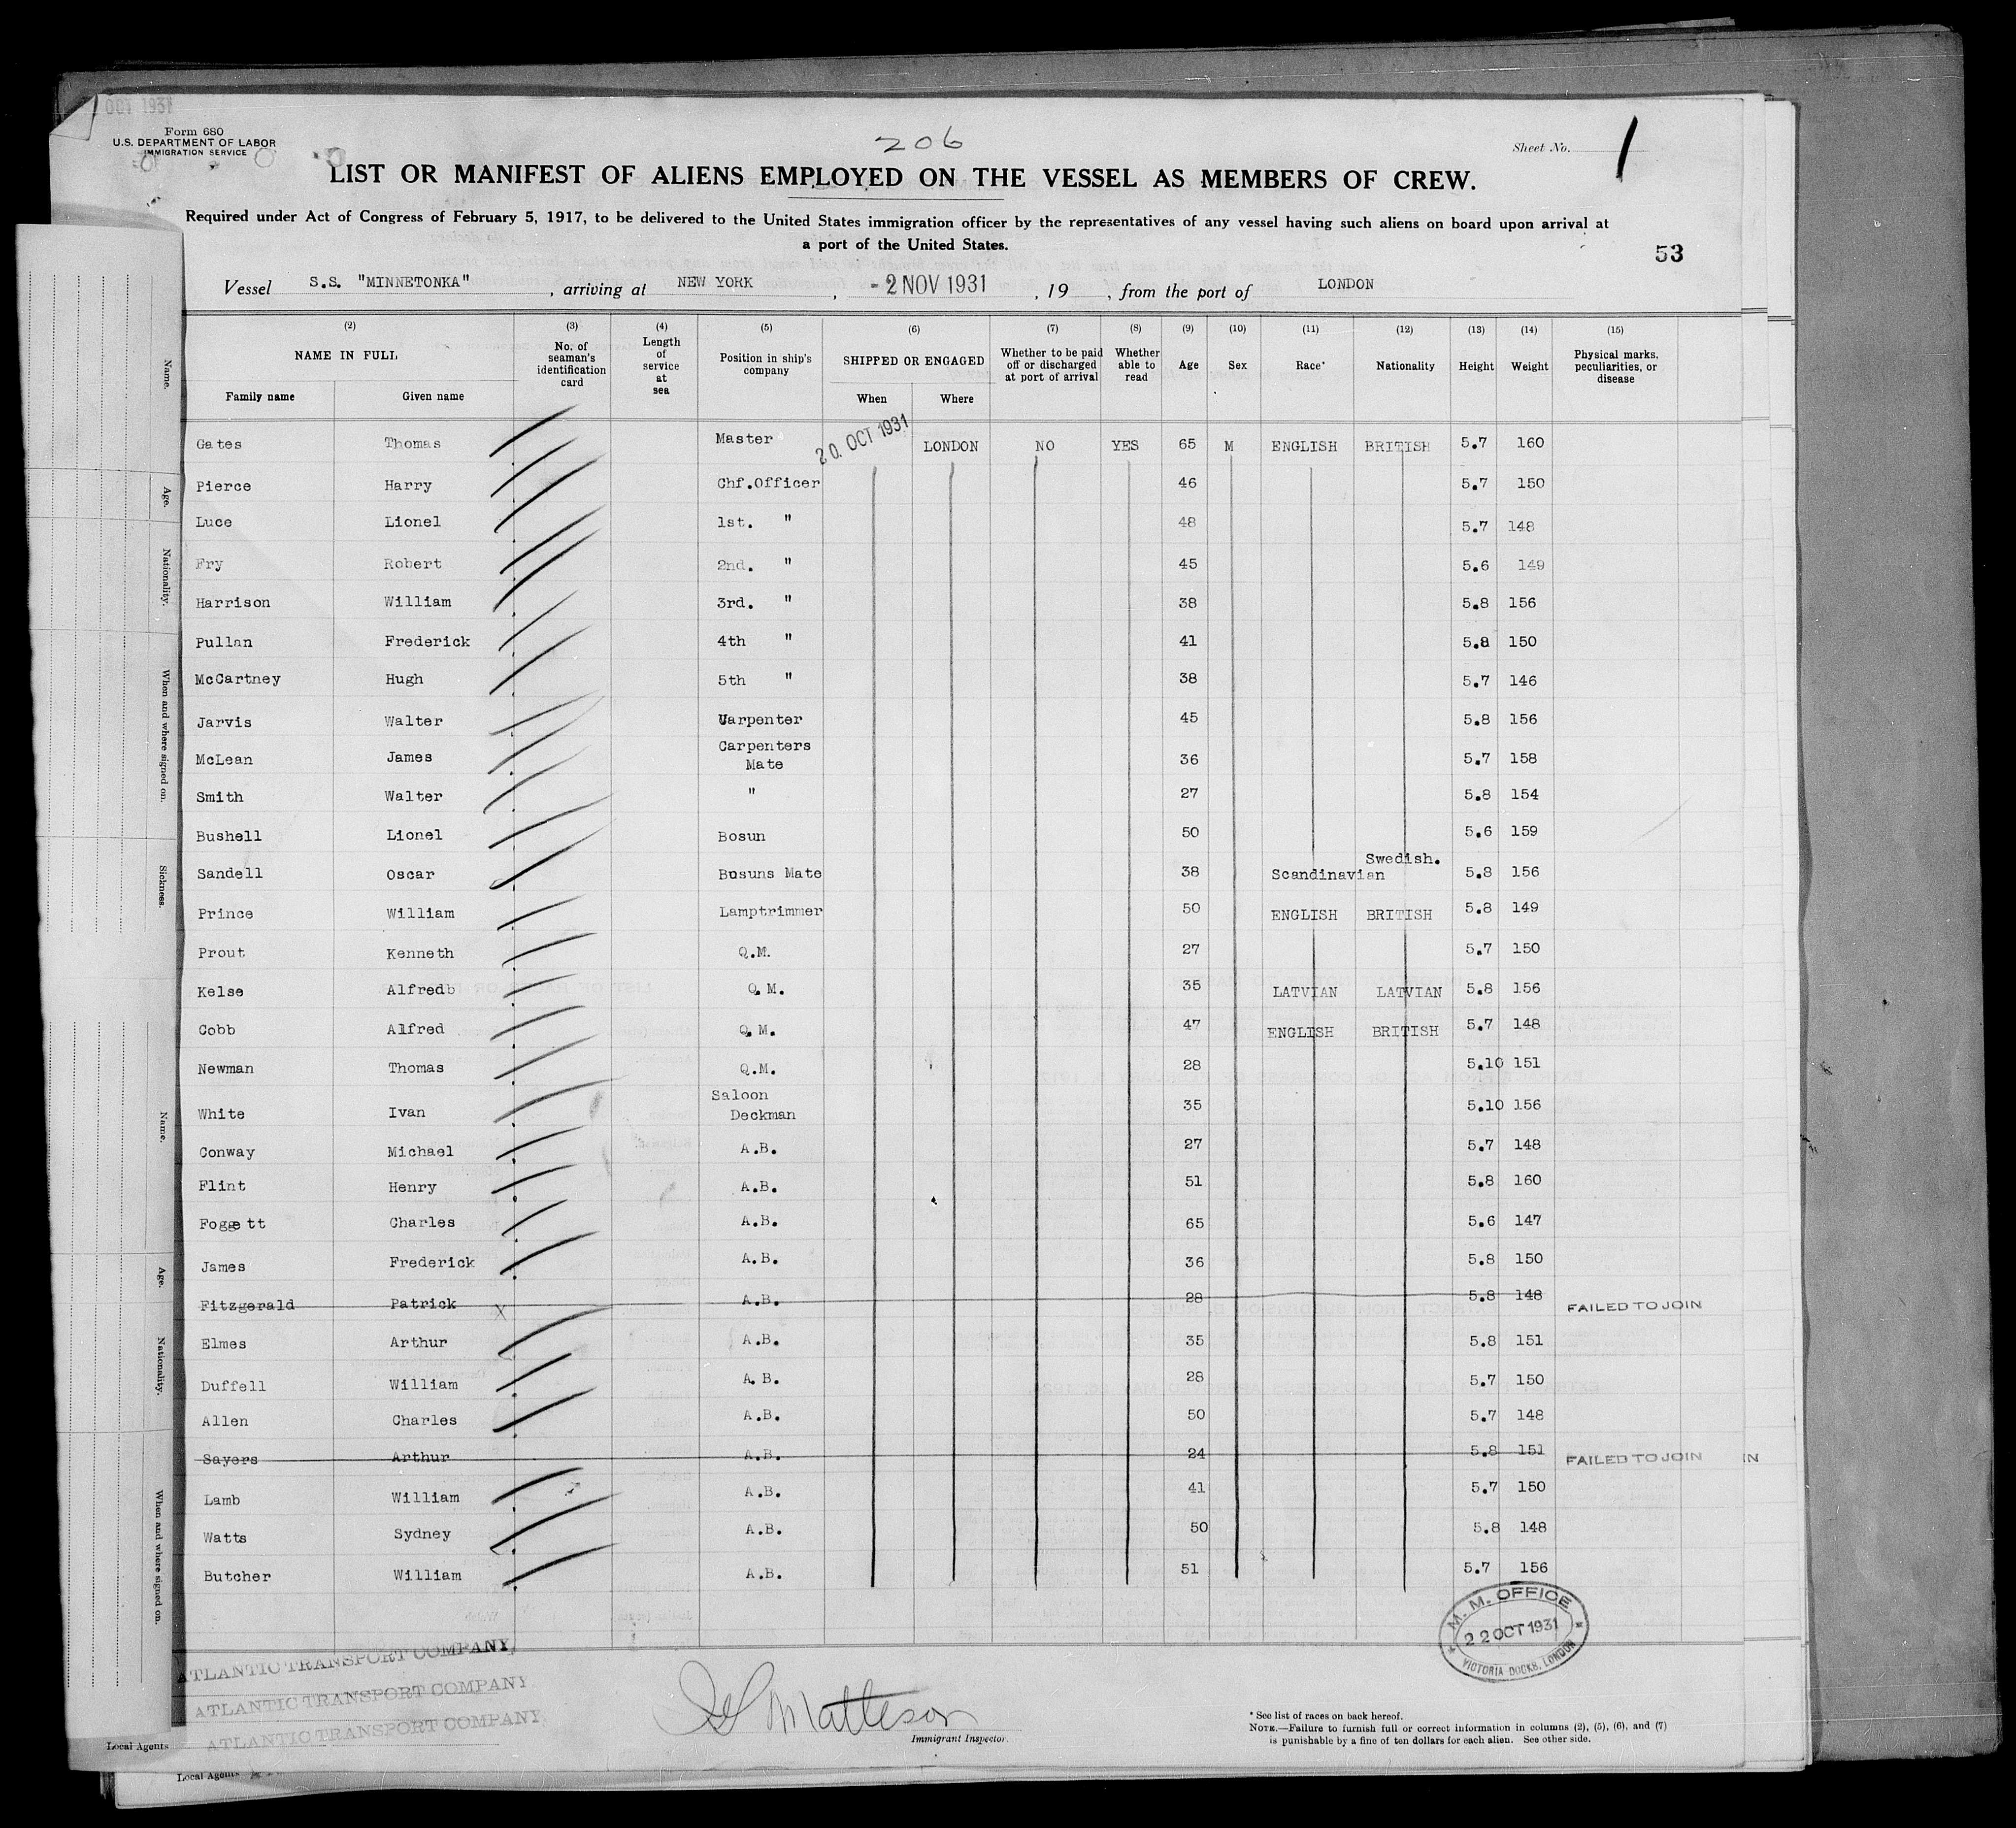 OCT 1931
Form 680
U.S. DEPARTMENT OF LABOR
IMMIGRATION SERVICE
206
Sheet No. 1
LIST OR MANIFEST OF ALIENS EMPLOYED ON THE VESSEL AS MEMBERS OF CREW.
Required under Act of Congress of February 5, 1917, to be delivered to the United States immigration officer by the representatives of any vessel having such aliens on board upon arrival at
a port of the United States.
53
Vessel S.S. "MINNETONKA" , arriving at NEW YORK , -2 NOV 1931 , 19 , from the port of LONDON
(2) (3) (4) (5) (6) (7) (8) (9) (10) (11) (12) (13) (14) (15)
NAME IN FULL No. of seaman's identification card Length of service at sea Position in ship's company SHIPPED OR ENGAGED Whether to be paid off or discharged at port of arrival Whether able to read Age Sex Race* Nationality Height Weight Physical marks, peculiarities, or disease
Family name Given name When Where
Gates Thomas Master 20 OCT 1931 LONDON NO YES 65 M ENGLISH BRITISH 5.7 160
Pierce Harry Chf.Officer 46 5.7 150
Luce Lionel 1st. " 48 5.7 148
Fry Robert 2nd. " 45 5.6 149
Harrison William 3rd. " 38 5.8 156
Pullan Frederick 4th " 41 5.8 150
McCartney Hugh 5th " 38 5.7 146
Jarvis Walter Carpenter 45 5.8 156
McLean James Carpenters Mate 36 5.7 158
Smith Walter " 27 5.8 154
Bushell Lionel Bosun 50 5.6 159
Sandell Oscar Bosuns Mate 38 Scandinavian Swedish. 5.8 156
Prince William Lamptrimmer 50 ENGLISH BRITISH 5.8 149
Prout Kenneth Q.M. 27 5.7 150
Kelse Alfredb Q.M. 35 LATVIAN LATVIAN 5.8 156
Cobb Alfred Q.M. 47 ENGLISH BRITISH 5.7 148
Newman Thomas Q.M. 28 5.10 151
White Ivan Saloon Deckman 35 5.10 156
Conway Michael A.B. 27 5.7 148
Flint Henry A.B. 51 5.8 160
Foggett Charles A.B. 65 5.6 147
James Frederick A.B. 36 5.8 150
Fitzgerald Patrick X A.B. 28 5.8 148 FAILED TO JOIN
Elmes Arthur A.B. 35 5.8 151
Duffell William A.B. 28 5.7 150
Allen Charles A.B. 50 5.7 148
Sayers Arthur A.B. 24 5.8 151 FAILED TO JOIN IN
Lamb William A.B. 41 5.7 150
Watts Sydney A.B. 50 5.8 148
Butcher William A.B. 51 5.7 156
M. M. OFFICE
22 OCT 1931
VICTORIA DOCKS, LONDON
ATLANTIC TRANSPORT COMPANY
ATLANTIC TRANSPORT COMPANY
ATLANTIC TRANSPORT COMPANY
Matteson
Immigrant Inspector.
* See list of races on back hereof.
NOTE.—Failure to furnish full or correct information in columns (2), (5), (6), and (7)
is punishable by a fine of ten dollars for each alien. See other side.
Local Agents
Local Agents
Name.
Age.
Nationality.
When and where signed on.
Sickness.
Name.
Age.
Nationality.
When and where signed on.